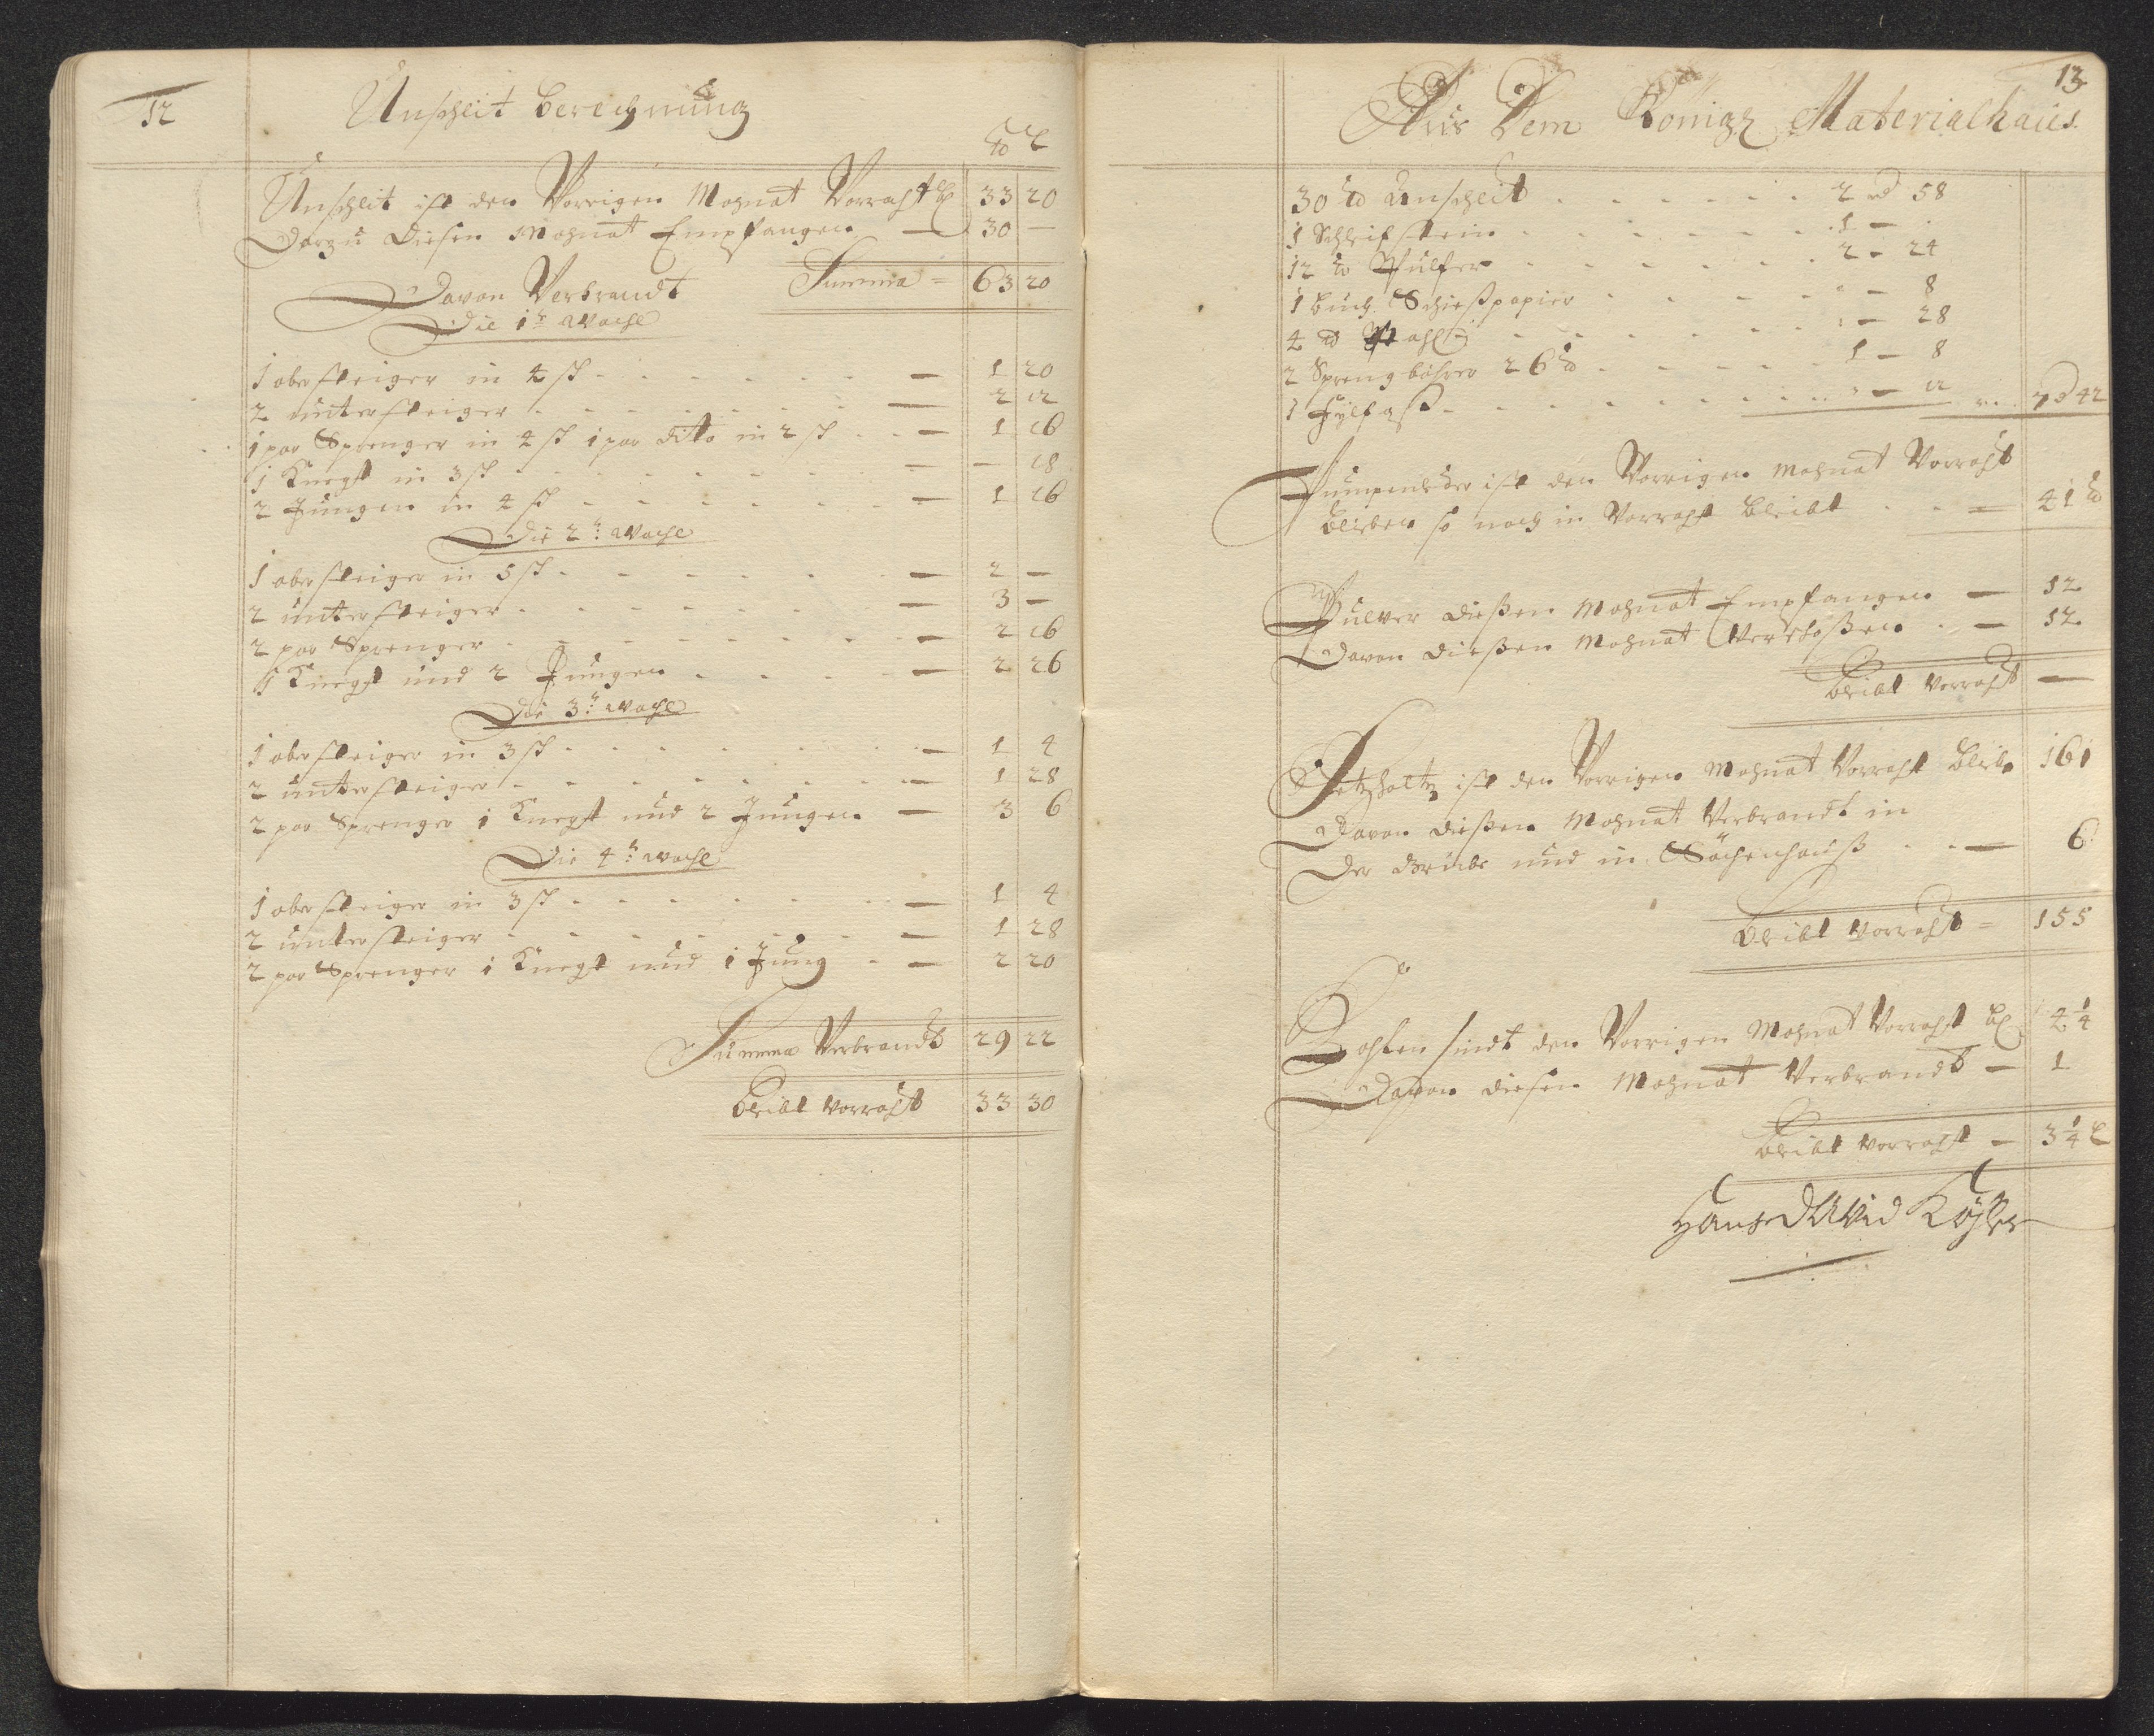 12
Unschleit Berechnung
℔ L
Unschleit ist den Vorrigen Mohnat Vorraht 33 20
Darzu Diesen Mohnat Empfangen — 30 —
Summa = 63 20
Davon Verbrandt
Die 1te Woche
1 obersteiger in 4 sch — 1 20
2 untersteiger — 2 12
1 par Sprenger in 4 sch 1 par dito in 2 sch — 1 16
1 Knegt in 3 sch — — 18
2 Jungen in 4 sch — 1 16
Die 2te Woche
1 obersteiger in 5 sch — 2 —
2 untersteiger — 3 —
2 par Sprenger — 2 16
1 Knegt und 2 Jungen — 2 26
Die 3te Woche
1 obersteiger in 3 sch — 1 4
2 untersteiger — 1 28
2 par Sprenger 1 Knegt und 2 Jungen — 3 6
Die 4te Woche
1 obersteiger in 3 sch — 1 4
2 untersteiger — 1 28
2 par Sprenger 1 Knegt und 1 Jung — 2 20
Summa Verbrandt 29 22
Bleibt Vorraht 33 30
13
Aus Dem Königl Materialhaus
30 ℔ Unschleit 2 rd 58
1 Schleifstein 1 —
12 ℔ Pulfer 2 - 24
1 Buch Schießpapier — 8
4 ℔ — 28
2 Sprengbohrer 26 ℔ 1 - 8
1 — 12 7 rd 42
Pumpenleder ist den Vorrigen Mohnat Vorraht
blieben so noch in Vorraht bleibt — 41 ℔
Pulver dießen Mohnat Empfangen — 12
Davon dießen Mohnat Verschoßen — 12
Bleibt Vorraht —
Setzholtz ist den Vorrigen Mohnat Vorraht blieb 161
Davon dießen Mohnat Verbrandt in
der Grube und in — 6
Bleibt Vorraht = 155
Kohlen sindt den Vorrigen Mohnat Vorraht 4 1/4
Davon diesen Mohnat Verbrandt — 1
Bleibt Vorraht — 3 1/4 L
Hans David